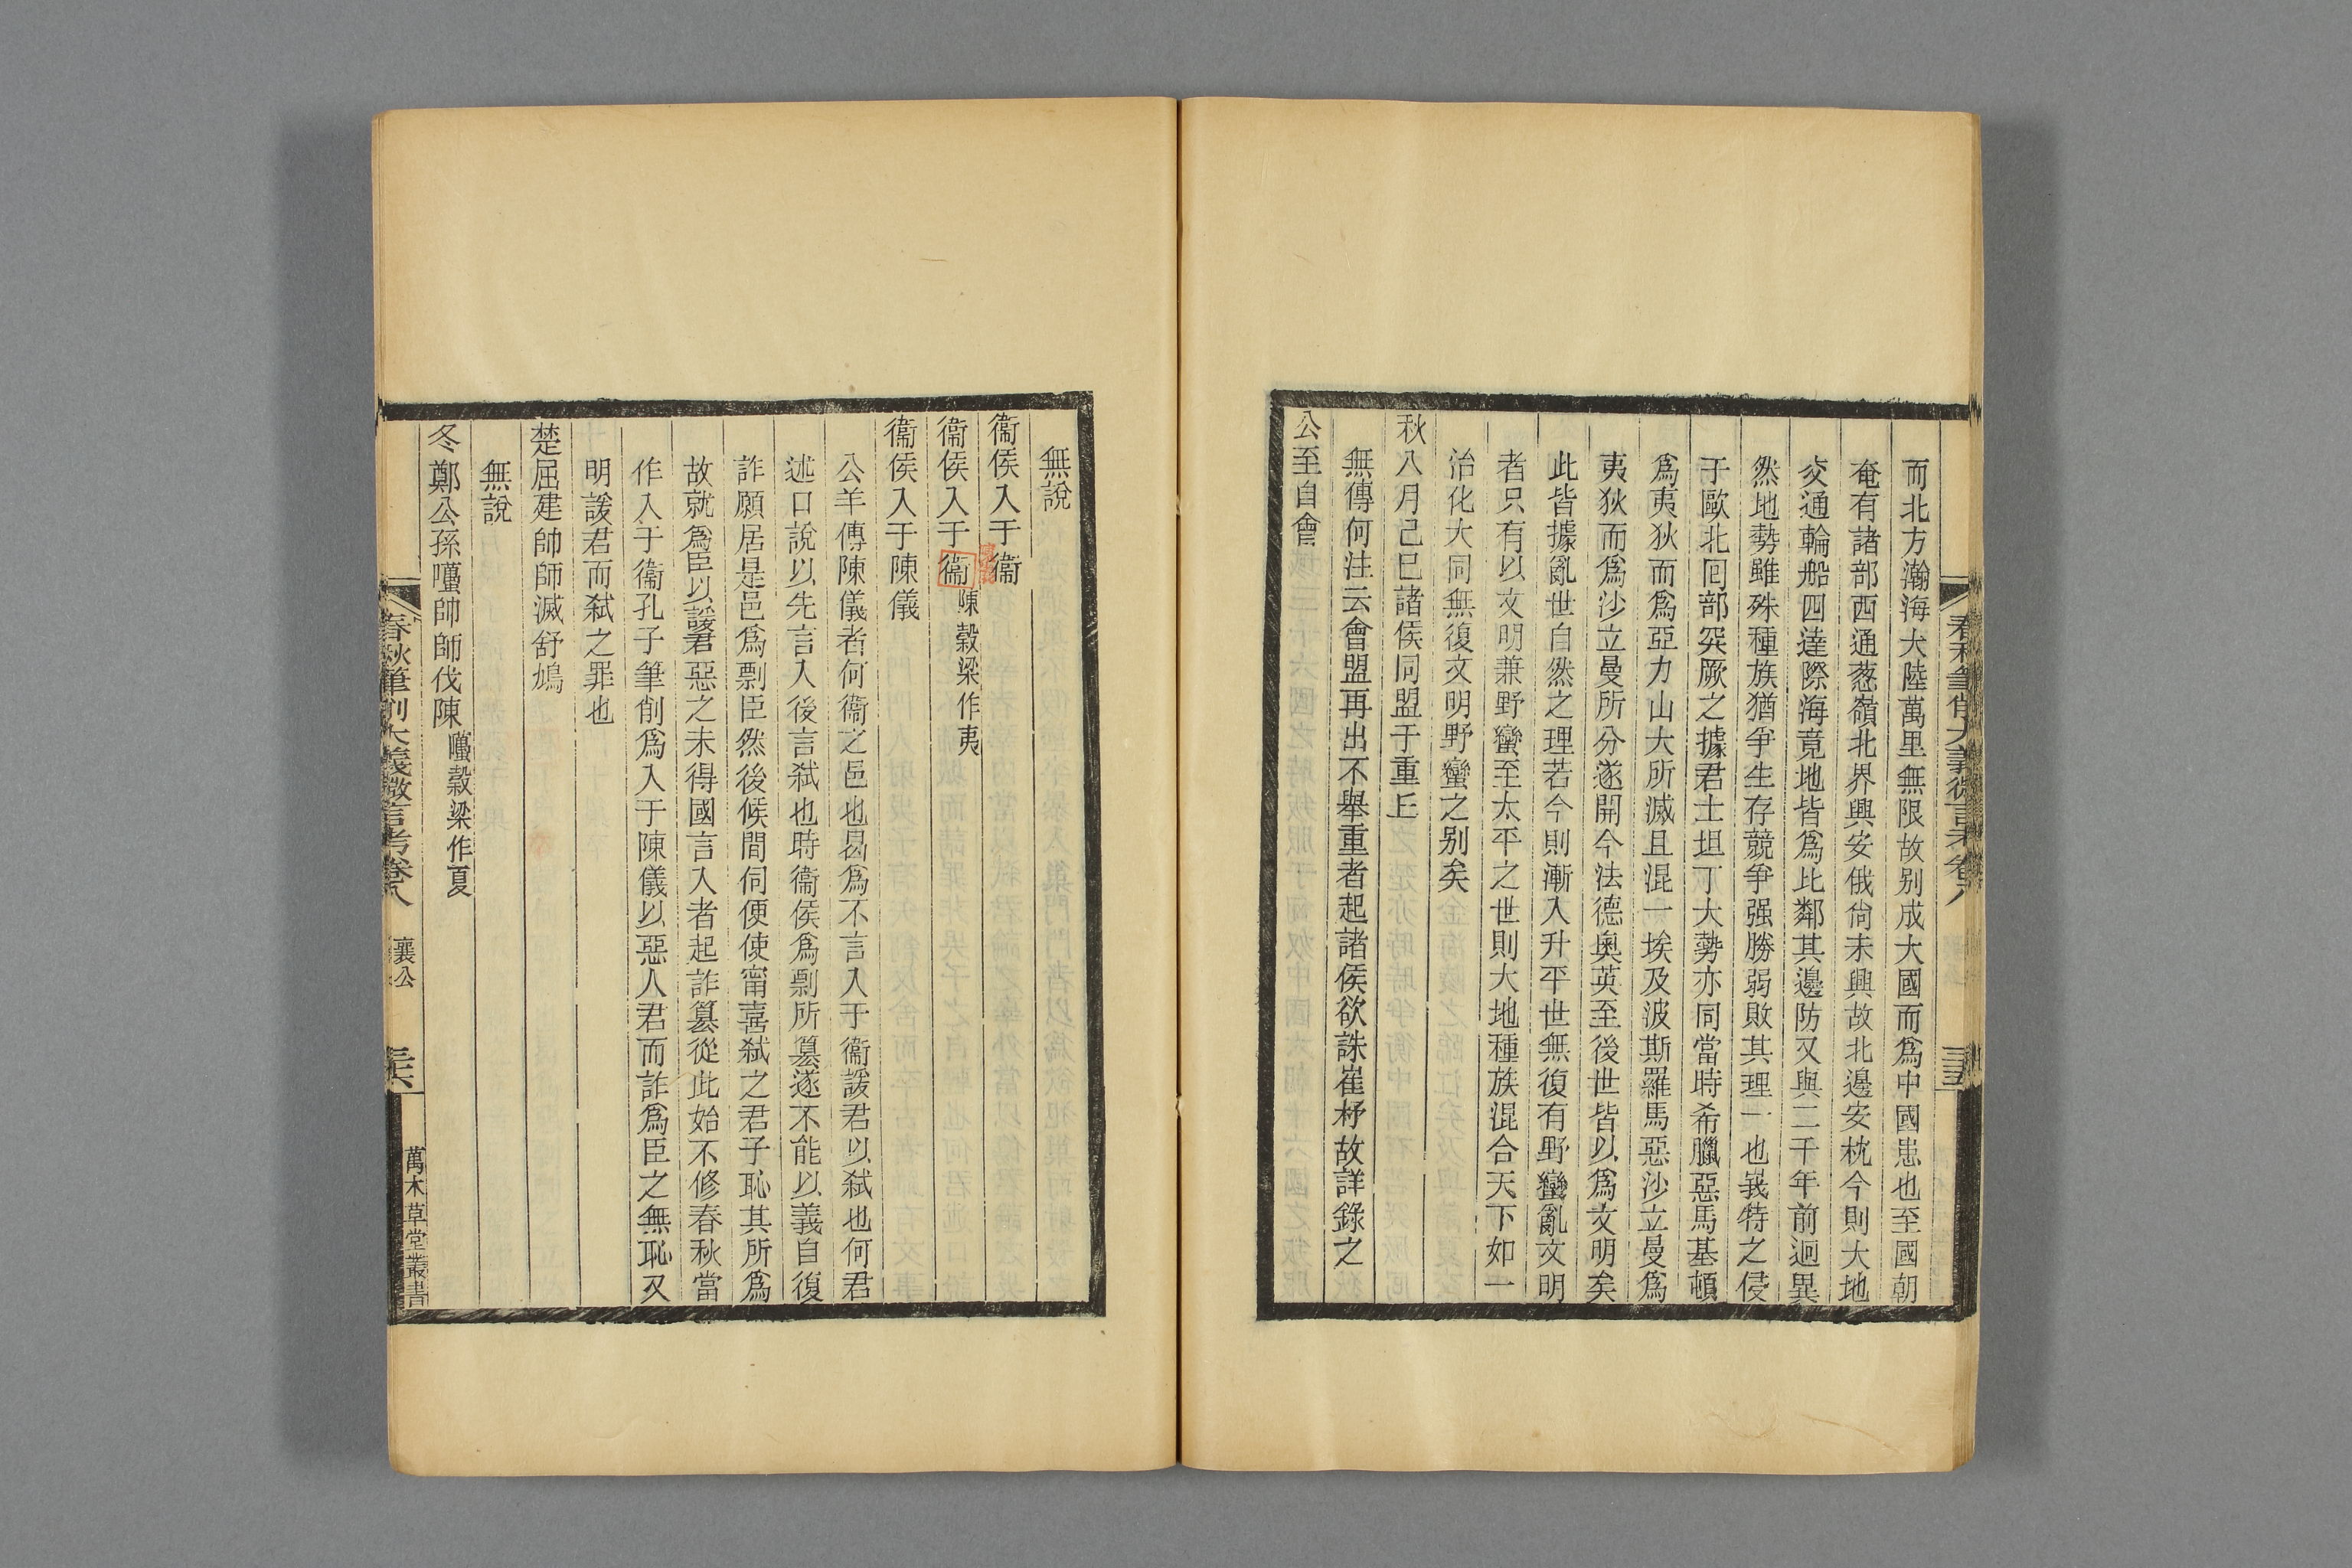 春秋筆削大義微言考卷八
三五
而北方瀚海大陸萬里無限故别成大國而爲中國患也至國朝
奄有諸部西通葱嶺北界興安俄尙未興故北邊安枕今則大地
交通輪船四達際海竟地皆爲比鄰其邊防又與二千年前迥異
然地勢雖殊種族猶爭生存競爭强勝弱敗其理一也峩特之侵
于歐北回部突厥之據君士坦丁大勢亦同當時希臘惡馬基頓
爲夷狄而爲亞力山大所滅且混一埃及波斯羅馬惡沙立曼爲
夷狄而爲沙立曼所分遂開今法德奧英至後世皆以爲文明矣
此皆據亂世自然之理若今則漸入升平世無復有野蠻亂文明
者只有以文明兼野蠻至太平之世則大地種族混合天下如一
治化大同無復文明野蠻之别矣
秋八月己巳諸侯同盟于重丘
無傳何注云會盟再出不舉重者起諸侯欲誅崔杼故詳錄之
公至自會
無說
衞侯入于衞
衞侯入于衞陳穀梁作夷
衞侯入于陳儀
公羊傳陳儀者何衞之邑也曷爲不言入于衞諼君以弑也何君
述口說以先言入後言弑也時衞侯爲剽所簒遂不能以義自復
詐願居是邑爲剽臣然後候間伺便使甯喜弑之君子恥其所爲
故就爲臣以諼君惡之未得國言入者起詐簒從此始不修春秋當
作入于衞孔子筆削爲入于陳儀以惡人君而詐爲臣之無恥又
明諼君而弑之罪也
楚屈建帥師滅舒鳩
無說
冬鄭公孫囆帥師伐陳囆穀梁作夏
春秋筆削大義微言考卷八
襄公
三六
萬木草堂叢書